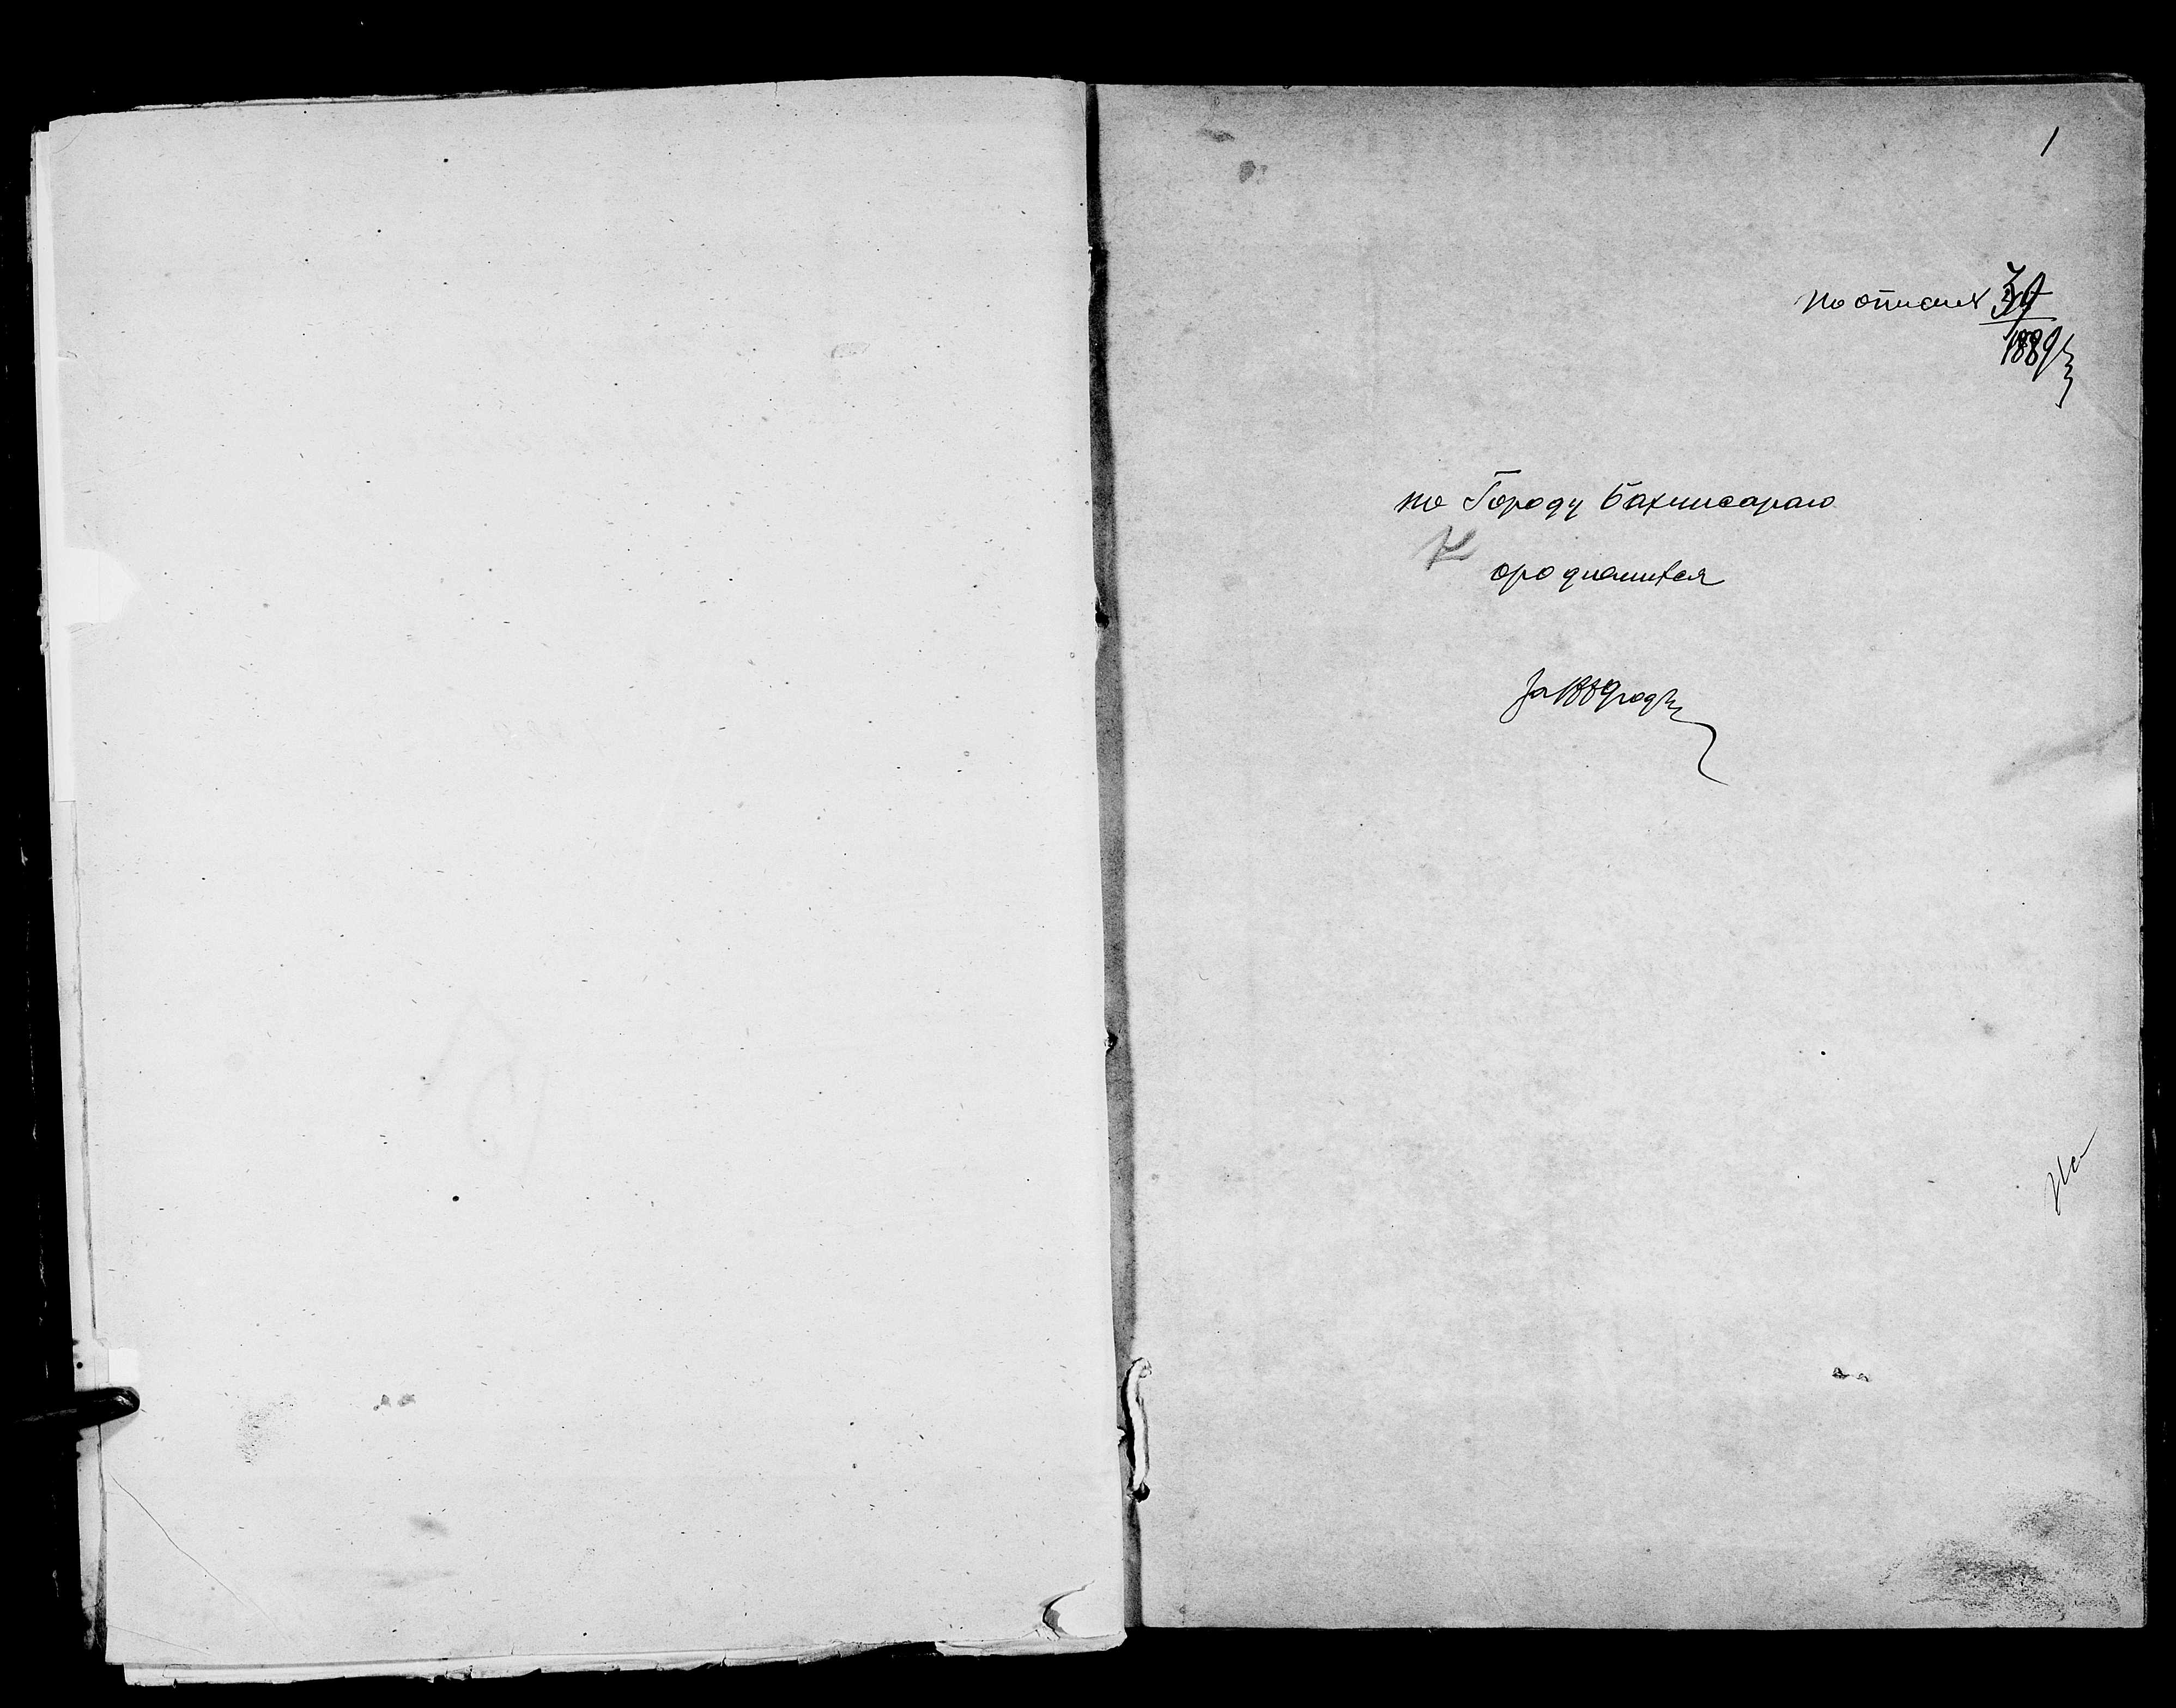 1
По описи
1889
по Городу Бахчисараю
о родившихся
За 1889 годъ